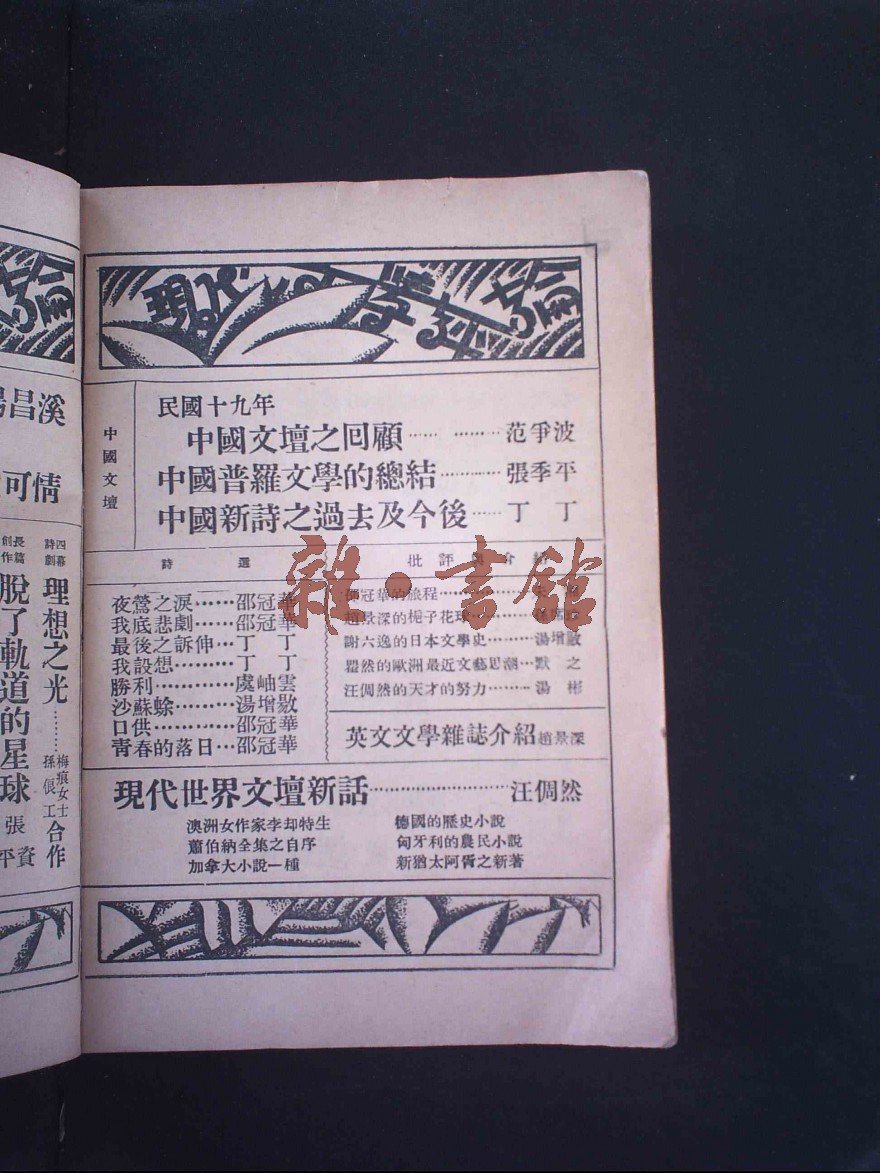 現代文學評論
民國十九年
中國文壇之回顧⋯⋯ ⋯⋯⋯范爭波
中國普羅文學的總結⋯⋯⋯⋯張季平
中國新詩之過去及今後⋯⋯丁 丁
中國文壇
詩 選
夜鶯之淚⋯⋯邵冠華
我底悲劇⋯⋯邵冠華
最後之訴伸⋯丁 丁
我設想⋯⋯⋯丁 丁
勝利⋯⋯⋯⋯虞岫雲
沙蘇蜍⋯⋯⋯湯增敭
口供⋯⋯⋯⋯邵冠華
靑春的落日⋯邵冠華
批評 介紹
冠華的旅程
趙景深的梔子花球
謝六逸的日本文學史⋯⋯⋯湯增敭
的歐洲最近文藝思潮⋯默 之
汪倜然的天才的努力⋯⋯⋯湯 彬
英文文學雜誌介紹趙景深
現代世界文壇新話⋯⋯⋯⋯⋯⋯汪倜然
澳洲女作家李却特生
蕭伯納全集之自序
加拿大小說一種
德國的歷史小說
匈牙利的農民小說
新猶太阿胥之新著
昌溪
可情
四幕詩劇
理想之光⋯⋯⋯
梅痕女士
孫俍工
合作
長篇創作
脫了軌道的星球
張資平
雜·書館